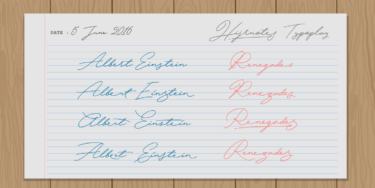 DATE : 5 June 2016 Hipnotes Typeplay
Albert Einstein Renegades
Albert Einstein Renegades
Albert Einstein Renegades
Albert Einstein Renegades